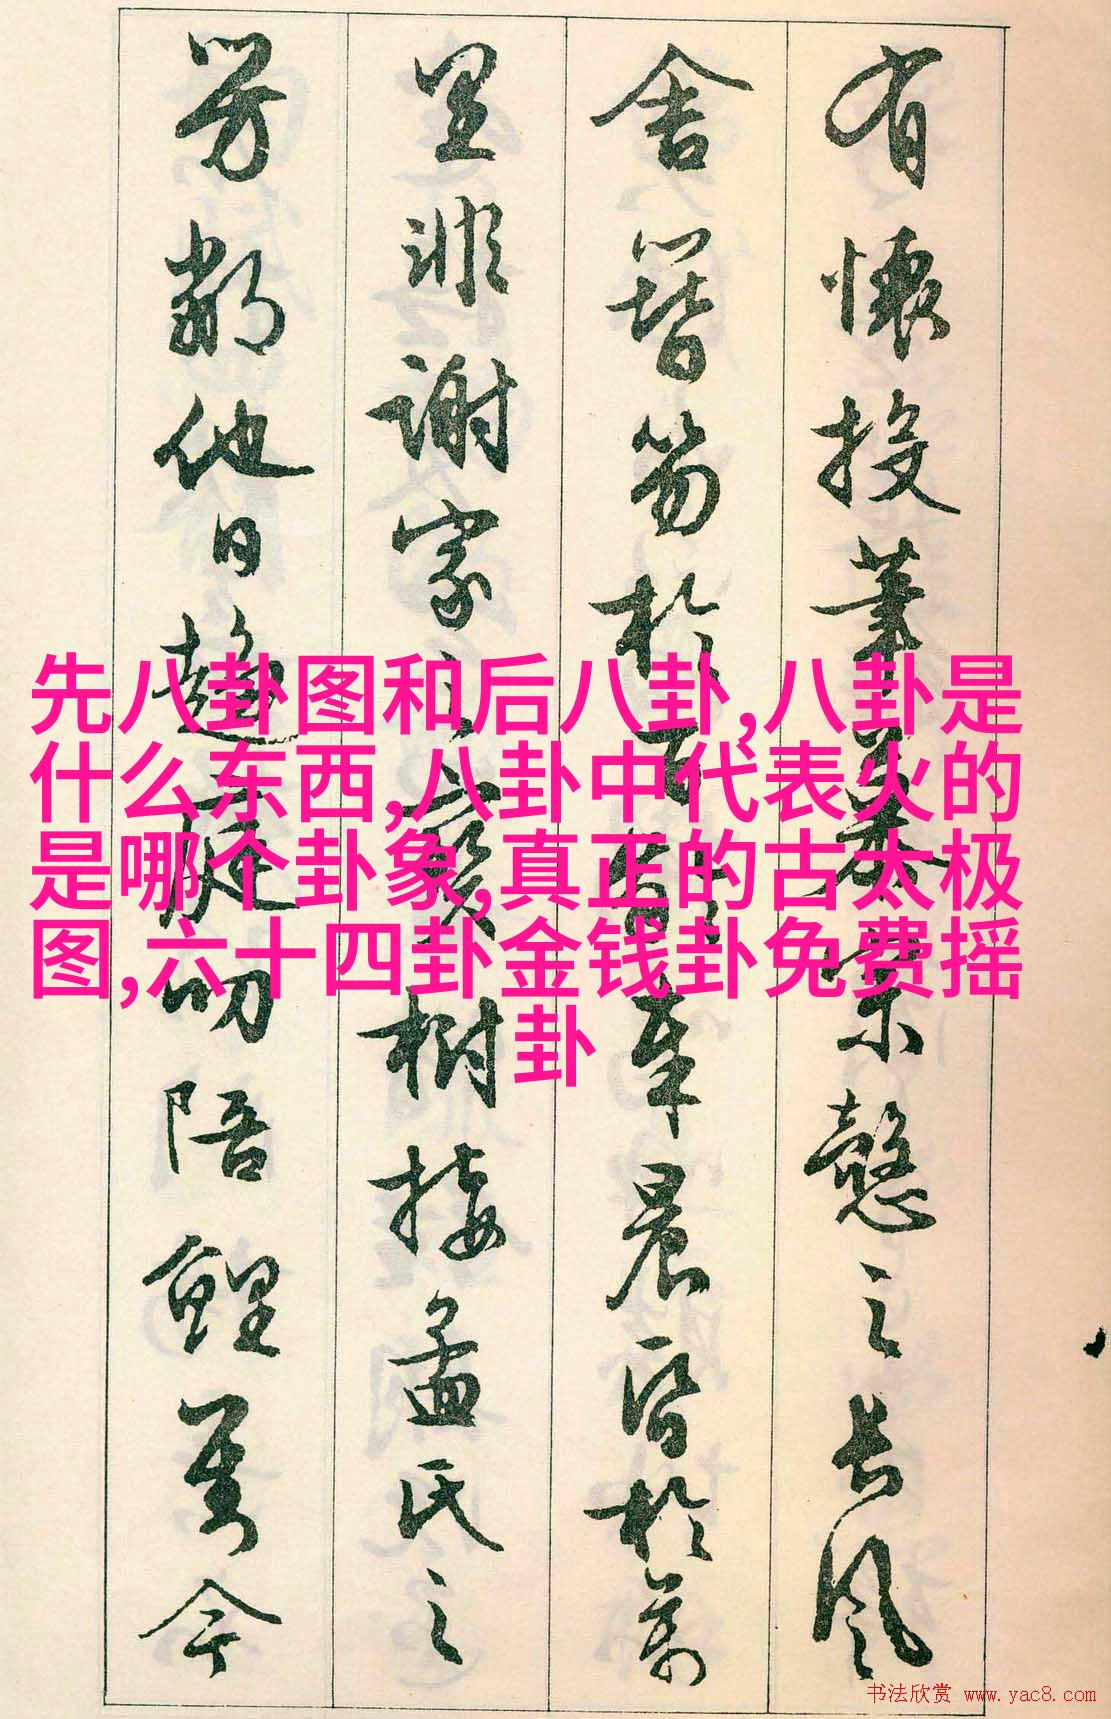 有懷投筆慕宗慤之長風
舍簪笏於百齡奉晨昏於萬
里非謝家之寶樹接孟氏之
芳鄰他日趨庭叨陪鯉對今
先八卦图和后八卦,八卦是
什么东西,八卦中代表火的
是哪个卦象,真正的古太极
图,六十四卦金钱卦免费摇
卦
书法欣赏 www.yac8.com